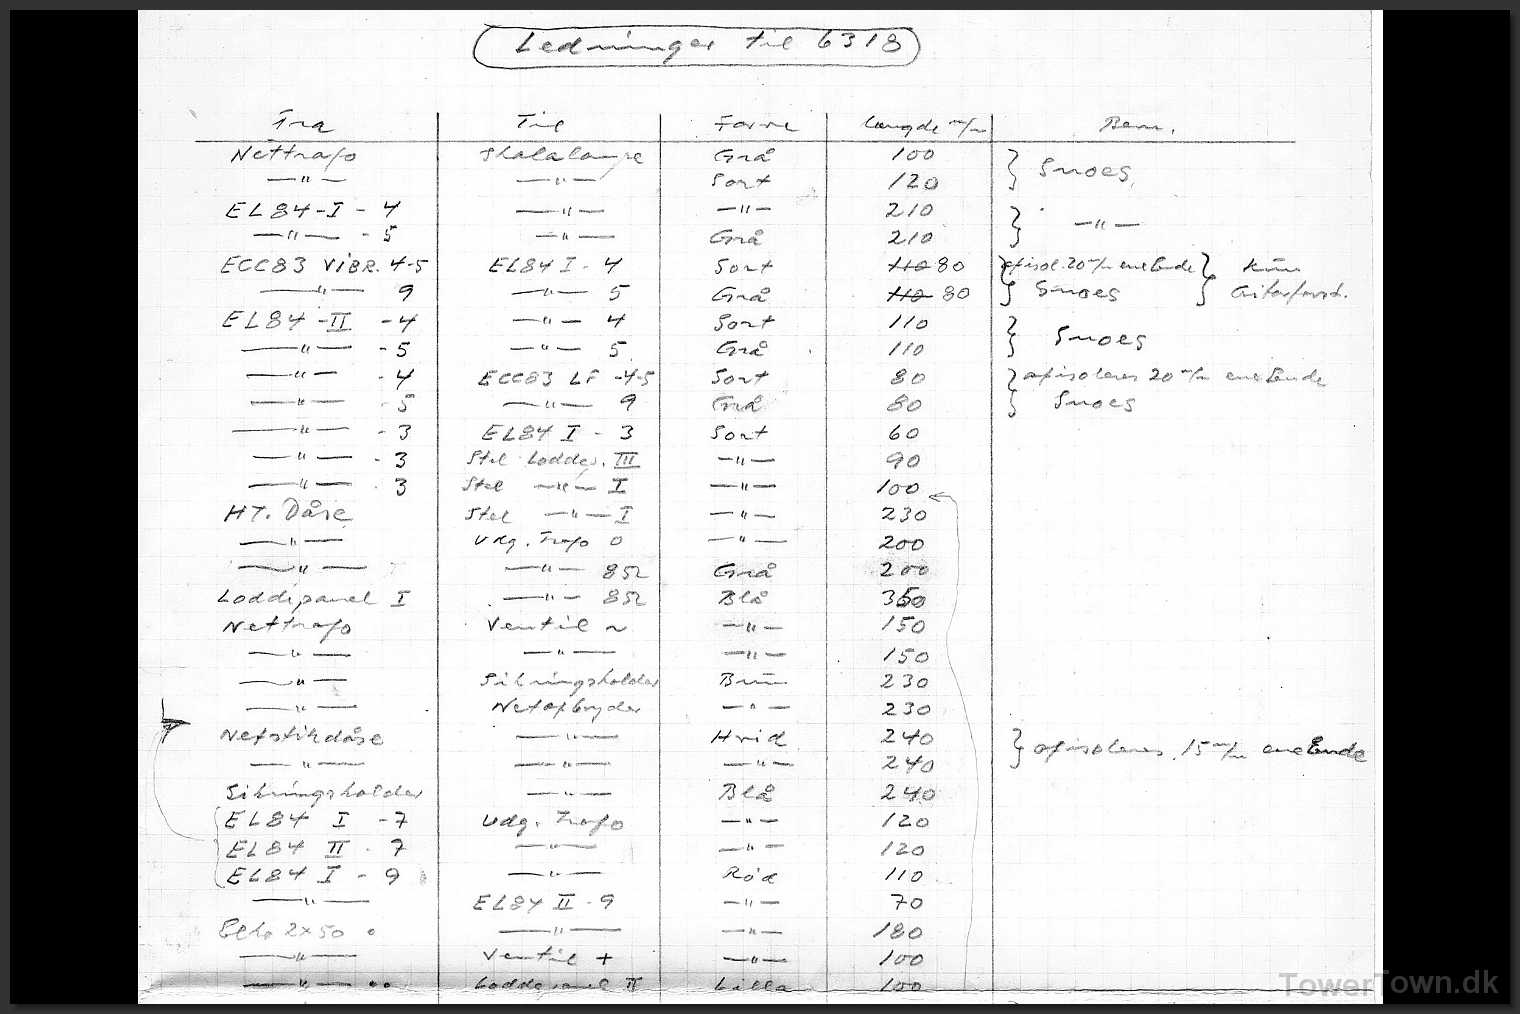 Ledninger til 6318
Fra Til Farve Længde m/m Bem.
Nettrafo Skalalampe Grå 100 } Snoes.
—"— —"— Sort 120
EL84-I - 4 —"— —"— 210 } —"—
—"— - 5 —"— Grå 210
ECC83 VIBR. 4-5 EL84 I - 4 Sort 110 80 afisol. 20 m/m ene Ende } Kun
—"— 9 —"— 5 Grå 110 80 } Snoes Guitarforst.
EL84-II - 4 —"— 4 Sort 110 } Snoes
—"— - 5 —"— 5 Grå 110
—"— - 4 ECC83 LF -4-5 Sort 80 } afisoleres 20 m/m ene Ende
—"— - 5 —"— 9 Grå 80 Snoes
—"— - 3 EL84 I - 3 Sort 60
—"— - 3 Stel Loddep. III —"— 90
—"— - 3 Stel —"— I —"— 100
HT. Dåse Stel —"— I —"— 230
—"— Udg. Trafo 0 —"— 200
—"— —"— 8Ω Grå 200
Loddepanel I —"— 8Ω Blå 350
Nettrafo Ventil ~ —"— 150
—"— —"— —"— 150
—"— Sikringsholder Brun 230
—"— Netafbryder —"— 230
Netstikdåse —"— Hvid 240 } afisoleres. 15 m/m ene Ende
—"— —"— —"— 240
Sikringsholder —"— Blå 240
EL84 I - 7 Udg. Trafo —"— 120
EL84 II - 7 —"— —"— 120
EL84 I - 9 —"— Rød 110
—"— EL84 II - 9 —"— 70
2x50 —"— —"— 180
—"— Ventil + —"— 100
—"— Loddepanel II Lilla 100
TowerTown.dk